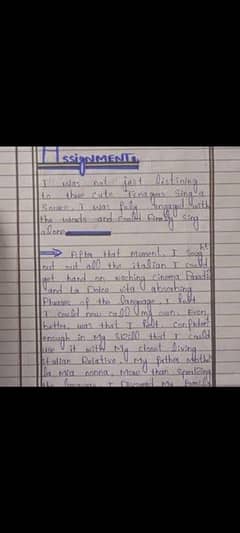 AssignMENT:
I was not just listining
to those cute Tenagers sing a
Songe. I was fully engaged with
the words and could finally sing
alone
⇒ After that moment, I sought
out all the italian I could
get hand on waching Cinema Paradi
and La Dolce vita absorbing
Phrases of the language, I felt
I could now call my own. Even
better was that I felt confident
enough in My skill that I could
use it with My closet living
italian Relative, My father Mother
la mia nonna. More than speaking
the language, I Discoverd My family